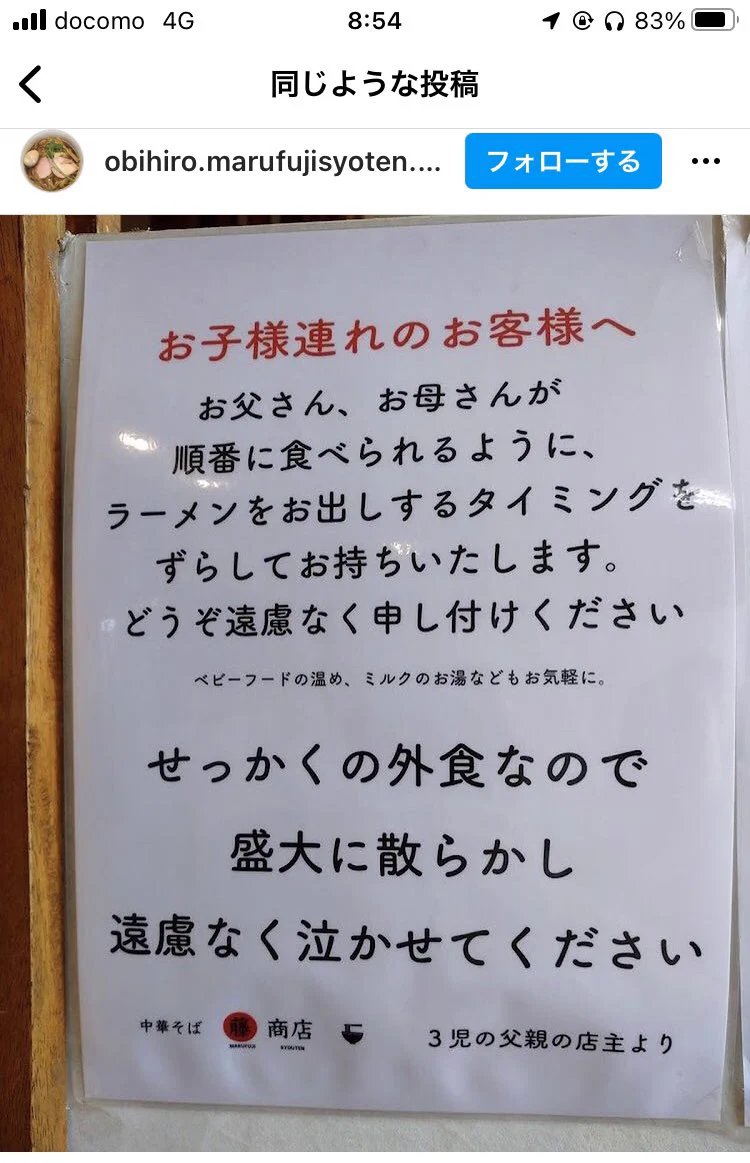 docomo 4G 8:54 83%
同じような投稿
obihiro.marufujisyoten.... フォローする
お子様連れのお客様へ
お父さん、お母さんが
順番に食べられるように、
ラーメンをお出しするタイミングを
ずらしてお持ちいたします。
どうぞ遠慮なく申し付けください
ベビーフードの温め、ミルクのお湯などもお気軽に。
せっかくの外食なので
盛大に散らかし
遠慮なく泣かせてください
中華そば 藤 商店 3児の父親の店主より
MARUFUJI SYOUTEN